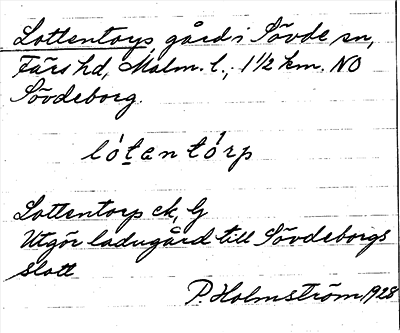 Lottentorp, gård i Sövde sn,
Färs hd, Malm. l., 1 1/2 km. NO
Sövdeborg.
lótentórp
Lottentorp ek, G
Utgör ladugård till Sövdeborgs
slott
P. Holmström 1928